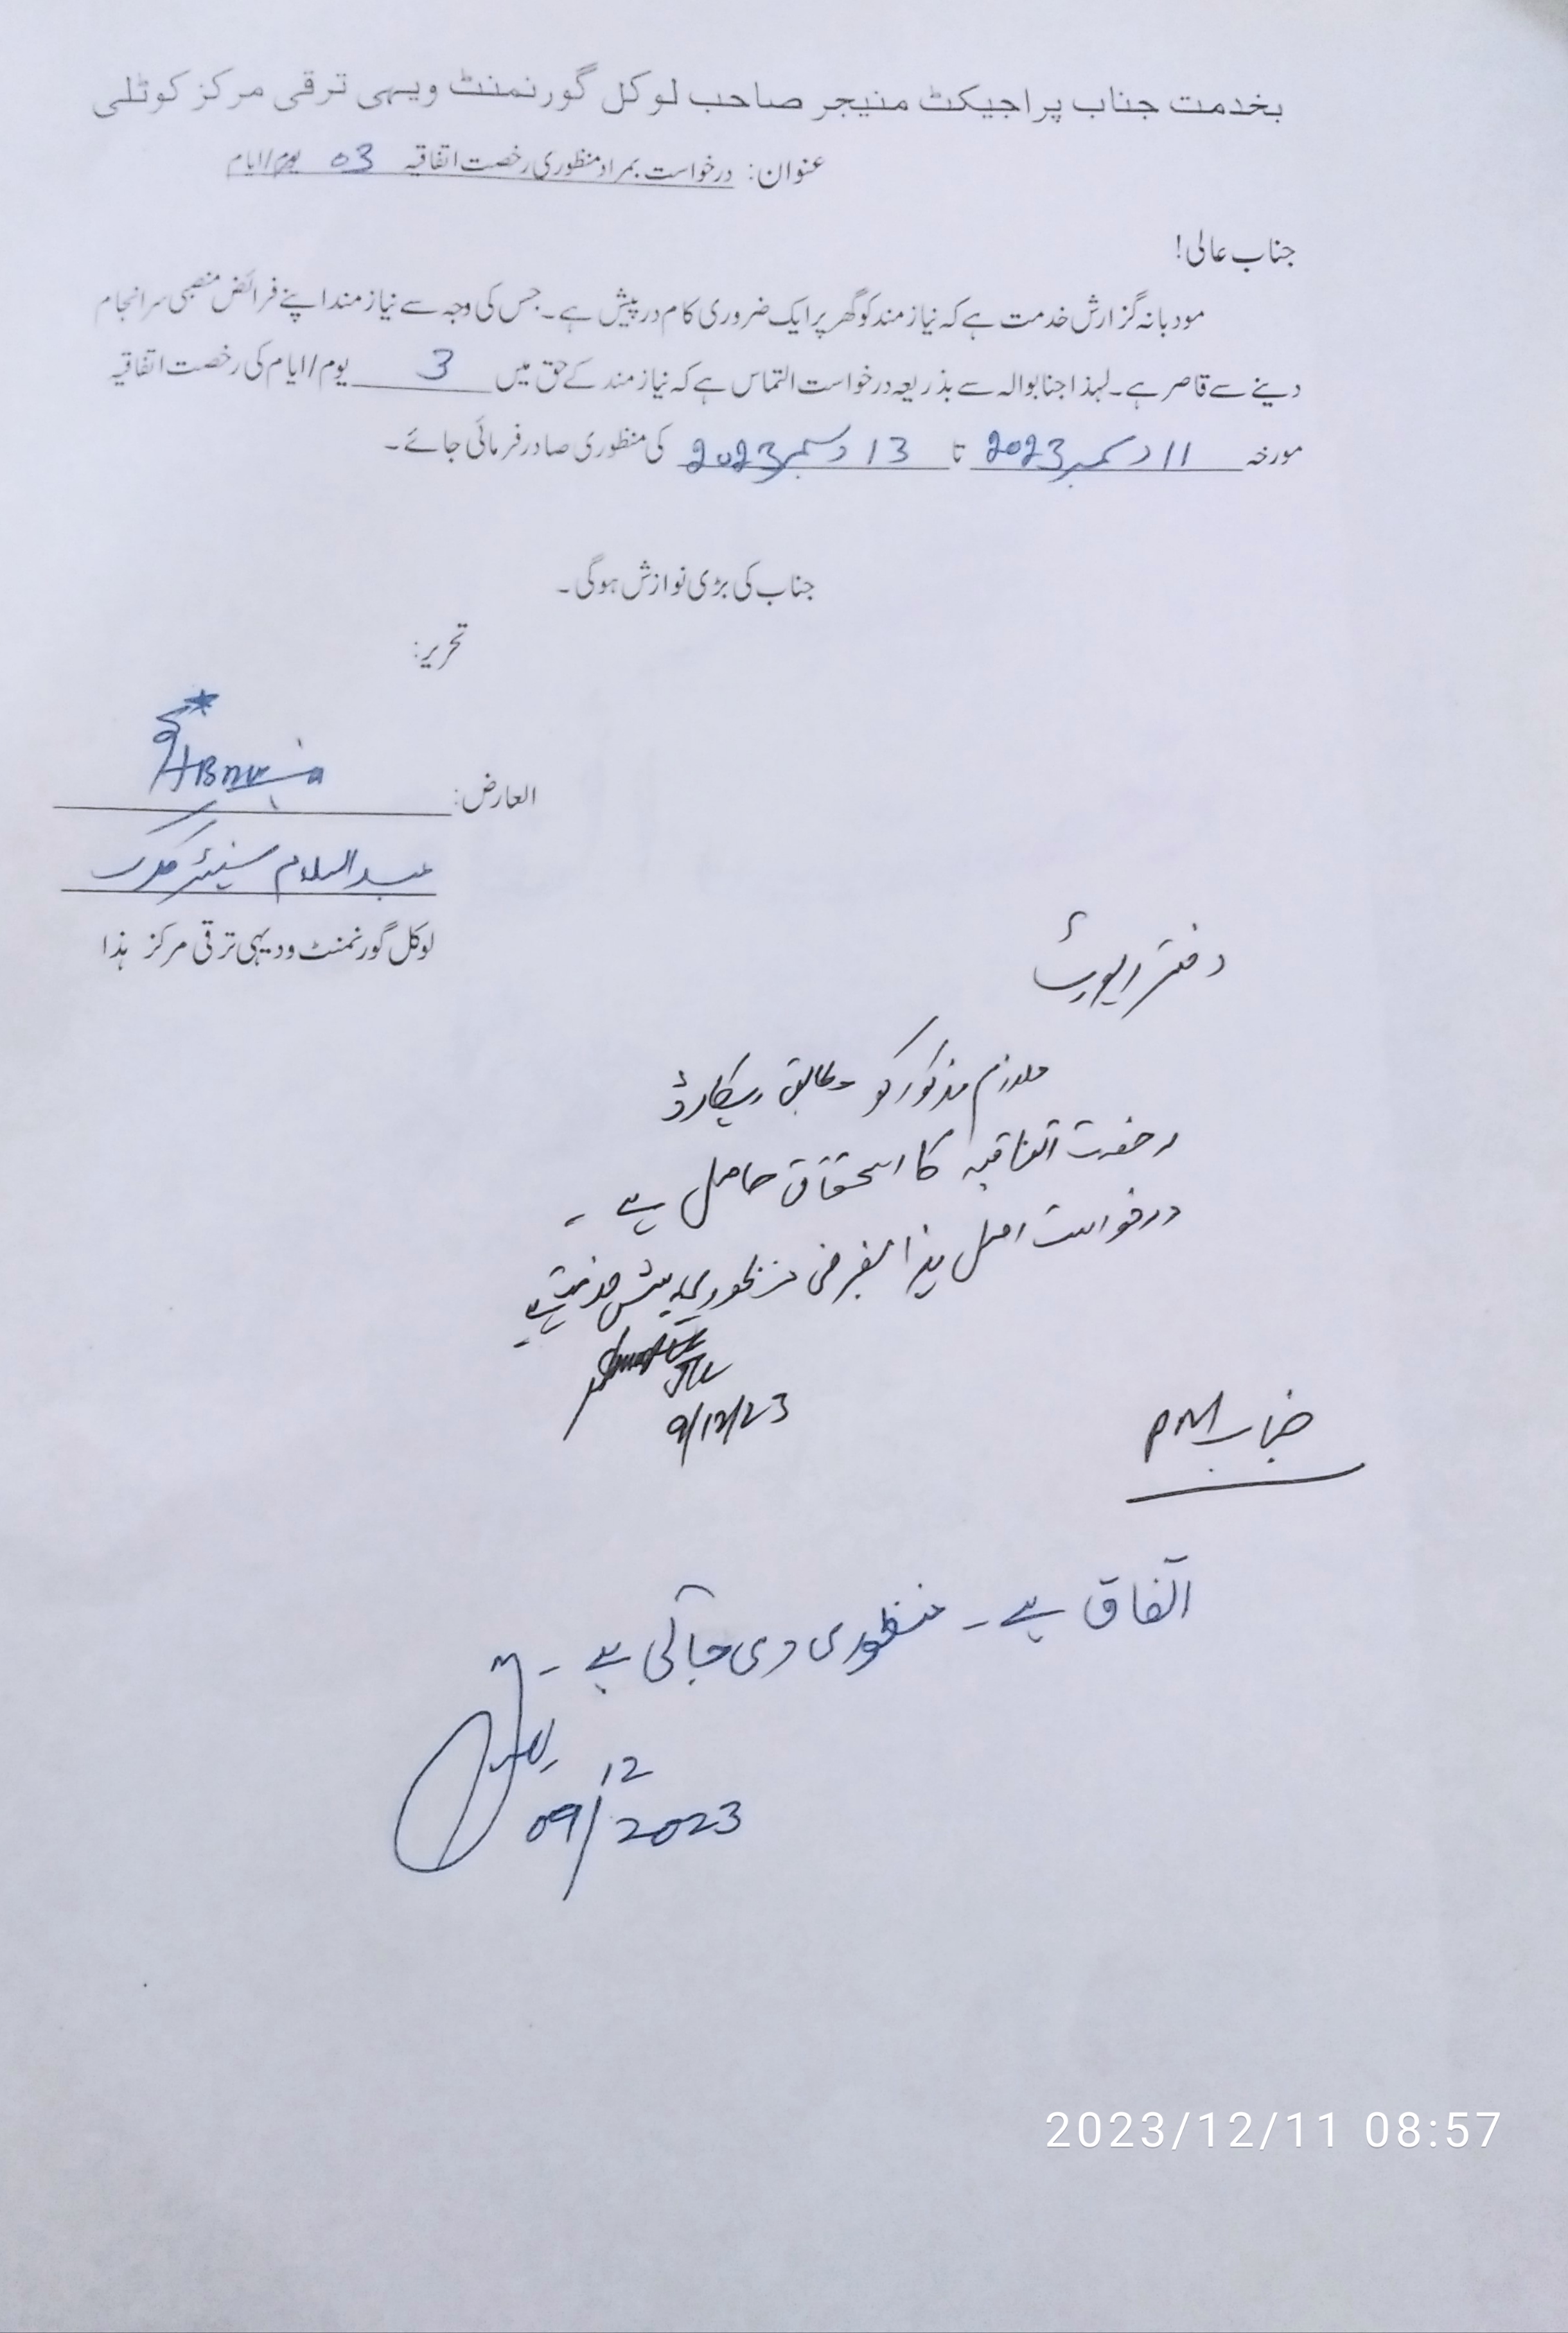 بخدمت جناب پراجیکٹ منیجر صاحب لوکل گورنمنٹ ویہی ترقی مرکز کوٹلی
عنوان: درخواست بمراد منظوری رخصت اتفاقیہ 03 یوم/ایام
جناب عالی!
مودبانہ گزارش خدمت ہے کہ نیاز مند کو گھر پر ایک ضروری کام درپیش ہے۔ جس کی وجہ سے نیاز مند اپنے فرائض منصبی سرانجام
دینے سے قاصر ہے۔ لہذا جنابوالہ سے بذریعہ درخواست التماس ہے کہ نیاز مند کے حق میں 3 یوم/ایام کی رخصت اتفاقیہ
مورخہ 11 دسمبر 2023 تا 13 دسمبر 2023 کی منظوری صادر فرمائی جائے۔
جناب کی بڑی نوازش ہوگی۔
تحریر:
العارض:
عبدالسلام سینئر کلرک
لوکل گورنمنٹ ودیہی ترقی مرکز ہذا
دفتر رپورٹ
ملازم مذکور کو مطابق ریکارڈ
رخصت اتفاقیہ کا استحقاق حاصل ہے ۔
درخواست اصل ہذا بغرض منظوری پیش خدمت ہے۔
9/12/23
جناب PM
اتفاق ہے ۔ منظوری دی جاتی ہے ۔
09/12/2023
2023/12/11 08:57